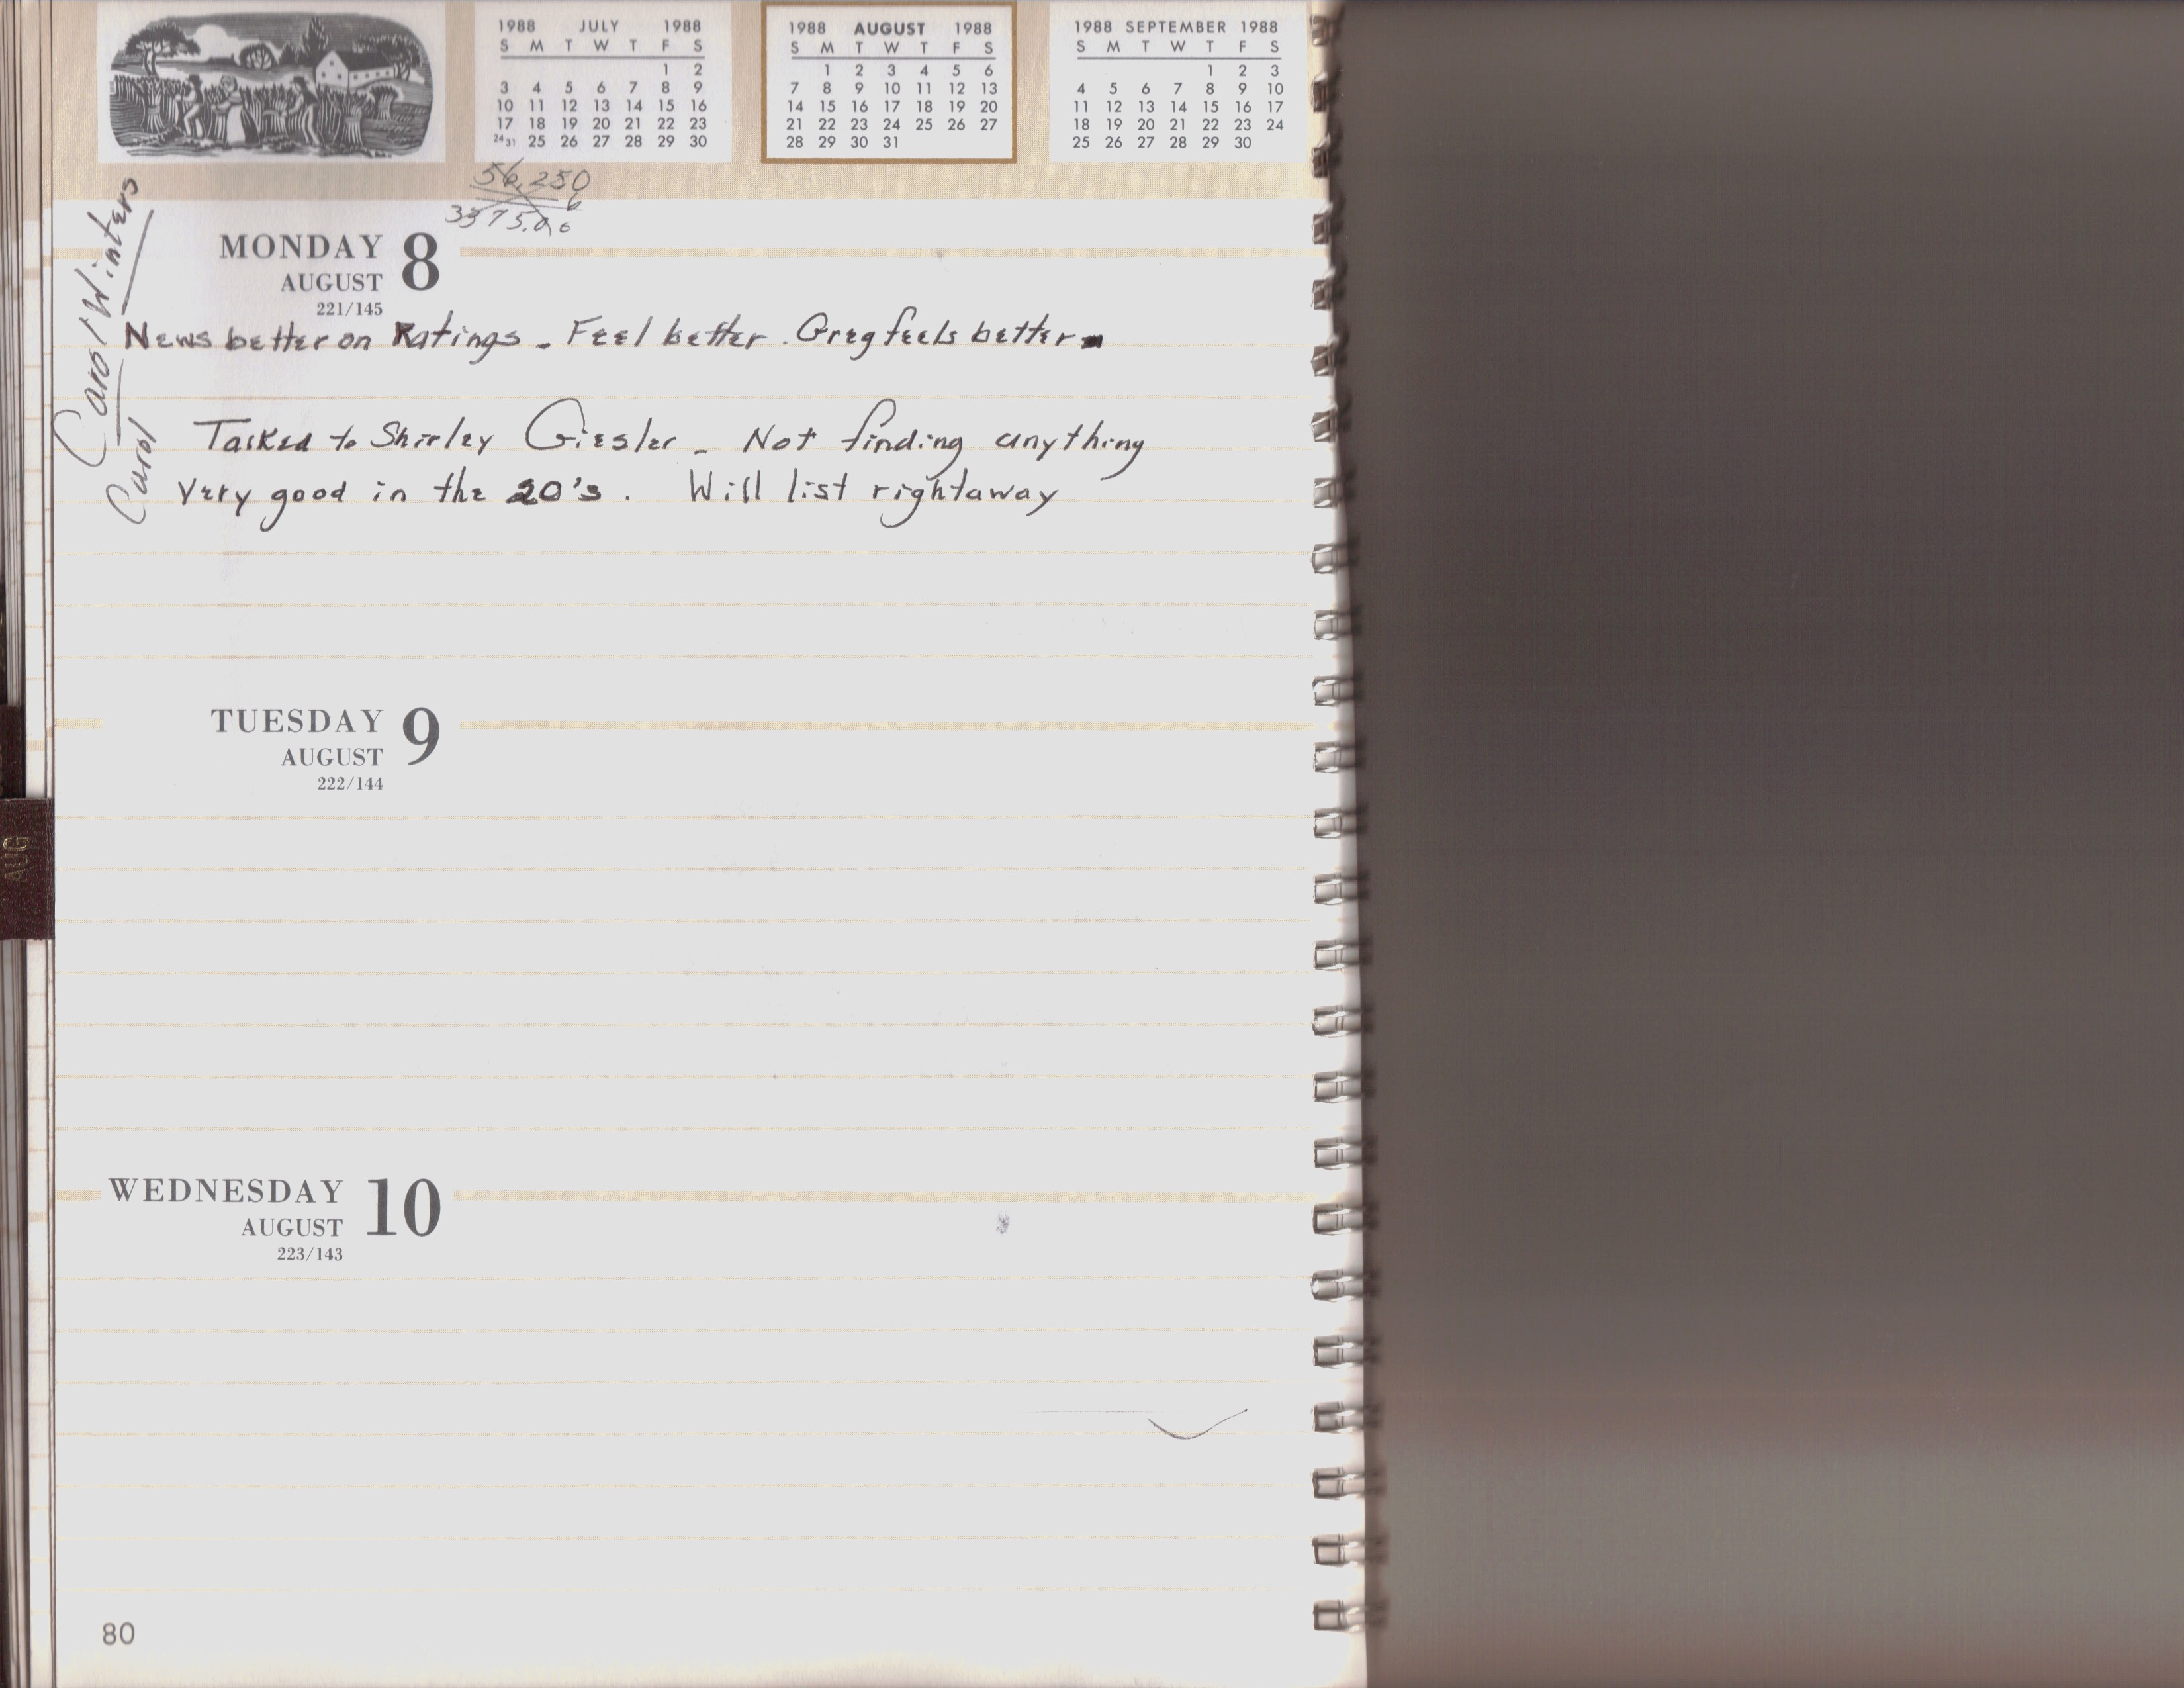 1988 JULY 1988
S M T W T F S
1 2
3 4 5 6 7 8 9
10 11 12 13 14 15 16
17 18 19 20 21 22 23
24 31 25 26 27 28 29 30
1988 AUGUST 1988
S M T W T F S
1 2 3 4 5 6
7 8 9 10 11 12 13
14 15 16 17 18 19 20
21 22 23 24 25 26 27
28 29 30 31
1988 SEPTEMBER 1988
S M T W T F S
1 2 3
4 5 6 7 8 9 10
11 12 13 14 15 16 17
18 19 20 21 22 23 24
25 26 27 28 29 30
56,250
6
3375.00
Carol Winters
Carol
MONDAY 8
AUGUST
221/145
News better on Ratings - Feel better. Greg feels better
Talked to Shirley Giesler - Not finding anything
Very good in the 20's. Will list rightaway
TUESDAY 9
AUGUST
222/144
AUG
WEDNESDAY 10
AUGUST
223/143
80